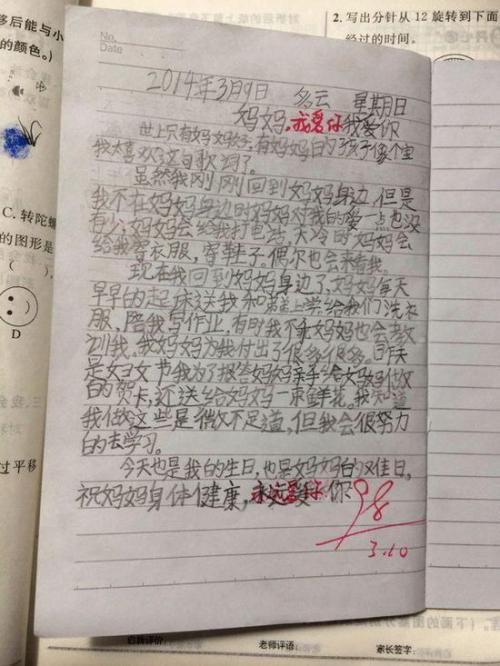 移后能与小
的颜色。)
2. 写出分针从 12 旋转到下面
经过的时间。
No.
Date
2014年3月9日 多云 星期日
妈妈,我爱你我爱你
世上只有妈妈好,有妈妈的孩子像个宝
我太喜欢这首歌词了。
虽然我刚刚回到妈妈身边,但是
我不在妈妈身边时妈妈对我的爱一点也没
有少,妈妈会给我打电话,天冷时妈妈会
给我寄衣服,寄鞋子,偶尔也会来看我。
现在我回到妈妈身边了,妈妈每天
早早的起床送我和弟弟上学给我们洗衣
服,陪我写作业,有时我不乖妈妈也会教
训我。我妈妈为我付出了很多很多。昨天
是妇女节我为了报答妈妈亲手给妈妈做
的贺卡,还送给妈妈一束鲜花。我知道
我做这些是微不足道,但我会很努力
的去学习。
今天也是我的生日,也是妈妈的
祝妈妈身体健康,永远爱你
98
3.10
C. 转陀螺
的图形是
( )。
D
过平移
自我评价:
老师评语:
家长签字: